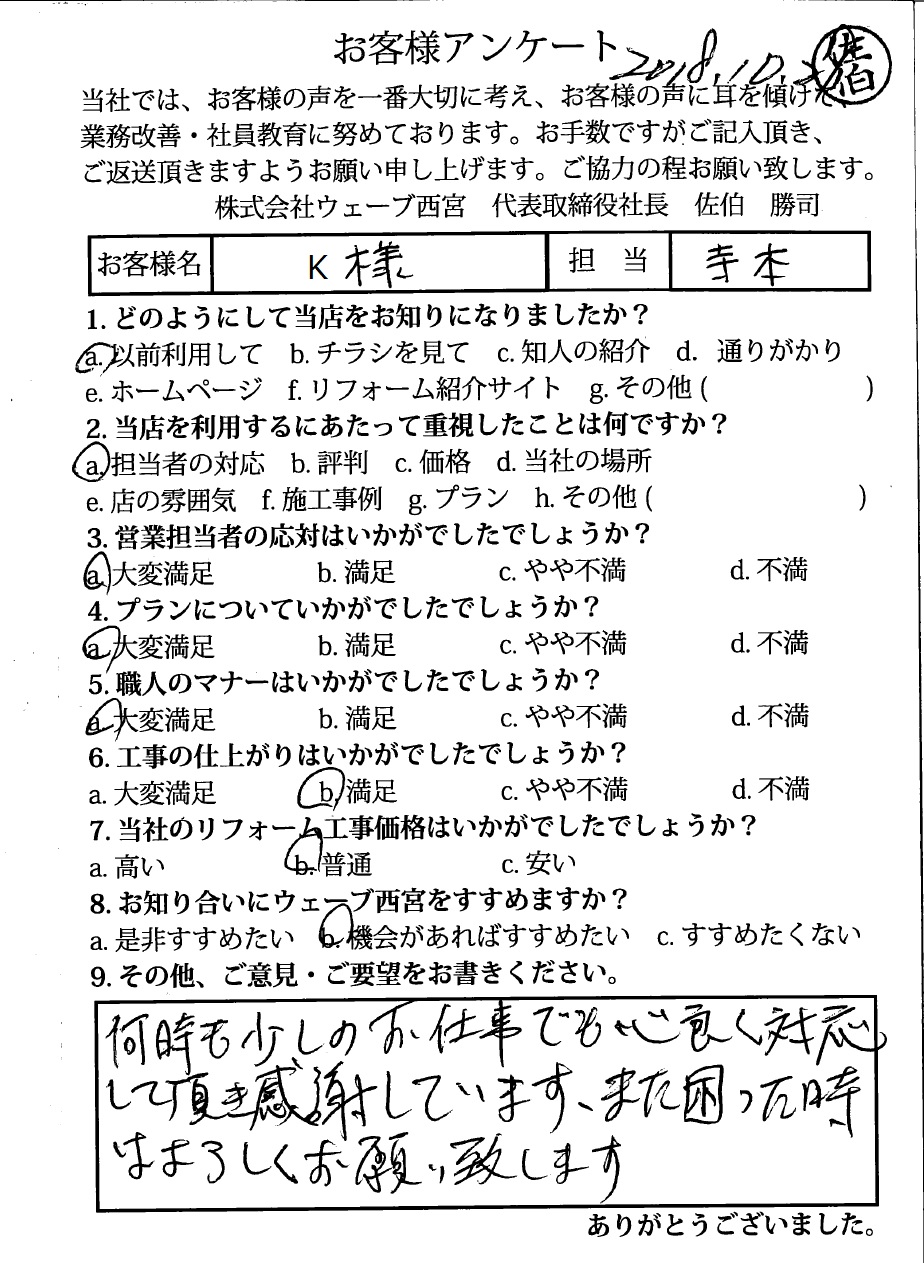 お客様アンケート 2018.10.
佐伯
当社では、お客様の声を一番大切に考え、お客様の声に耳を傾けて、
業務改善・社員教育に努めております。お手数ですがご記入頂き、
ご返送頂きますようお願い申し上げます。ご協力の程お願い致します。
株式会社ウェーブ西宮 代表取締役社長 佐伯 勝司
お客様名 K 様 担当 寺本
1. どのようにして当店をお知りになりましたか？
a. 以前利用して b. チラシを見て c. 知人の紹介 d. 通りがかり
e. ホームページ f. リフォーム紹介サイト g. その他 ( )
2. 当店を利用するにあたって重視したことは何ですか？
a. 担当者の対応 b. 評判 c. 価格 d. 当社の場所
e. 店の雰囲気 f. 施工事例 g. プラン h. その他 ( )
3. 営業担当者の応対はいかがでしたでしょうか？
a. 大変満足 b. 満足 c. やや不満 d. 不満
4. プランについていかがでしたでしょうか？
a. 大変満足 b. 満足 c. やや不満 d. 不満
5. 職人のマナーはいかがでしたでしょうか？
a. 大変満足 b. 満足 c. やや不満 d. 不満
6. 工事の仕上がりはいかがでしたでしょうか？
a. 大変満足 b. 満足 c. やや不満 d. 不満
7. 当社のリフォーム工事価格はいかがでしたでしょうか？
a. 高い b. 普通 c. 安い
8. お知り合いにウェーブ西宮をすすめますか？
a. 是非すすめたい b. 機会があればすすめたい c. すすめたくない
9. その他、ご意見・ご要望をお書きください。
何時も少しのお仕事でも心良く対応
して頂き感謝しています、また困った時
はよろしくお願い致します
ありがとうございました。